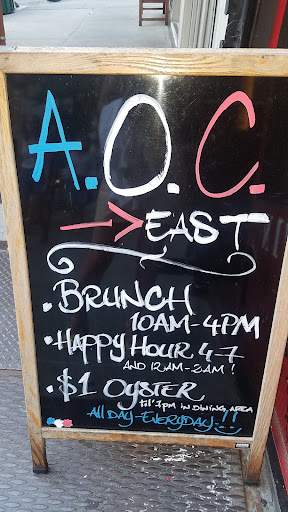 A.O.C.
→ EAST
• BRUNCH
10AM-4PM
• HAPPY HOUR 4-7
AND 12AM-2AM!
• $1 OYSTER
til 7PM IN DINING AREA
All DAY-EVERYDAY-!!